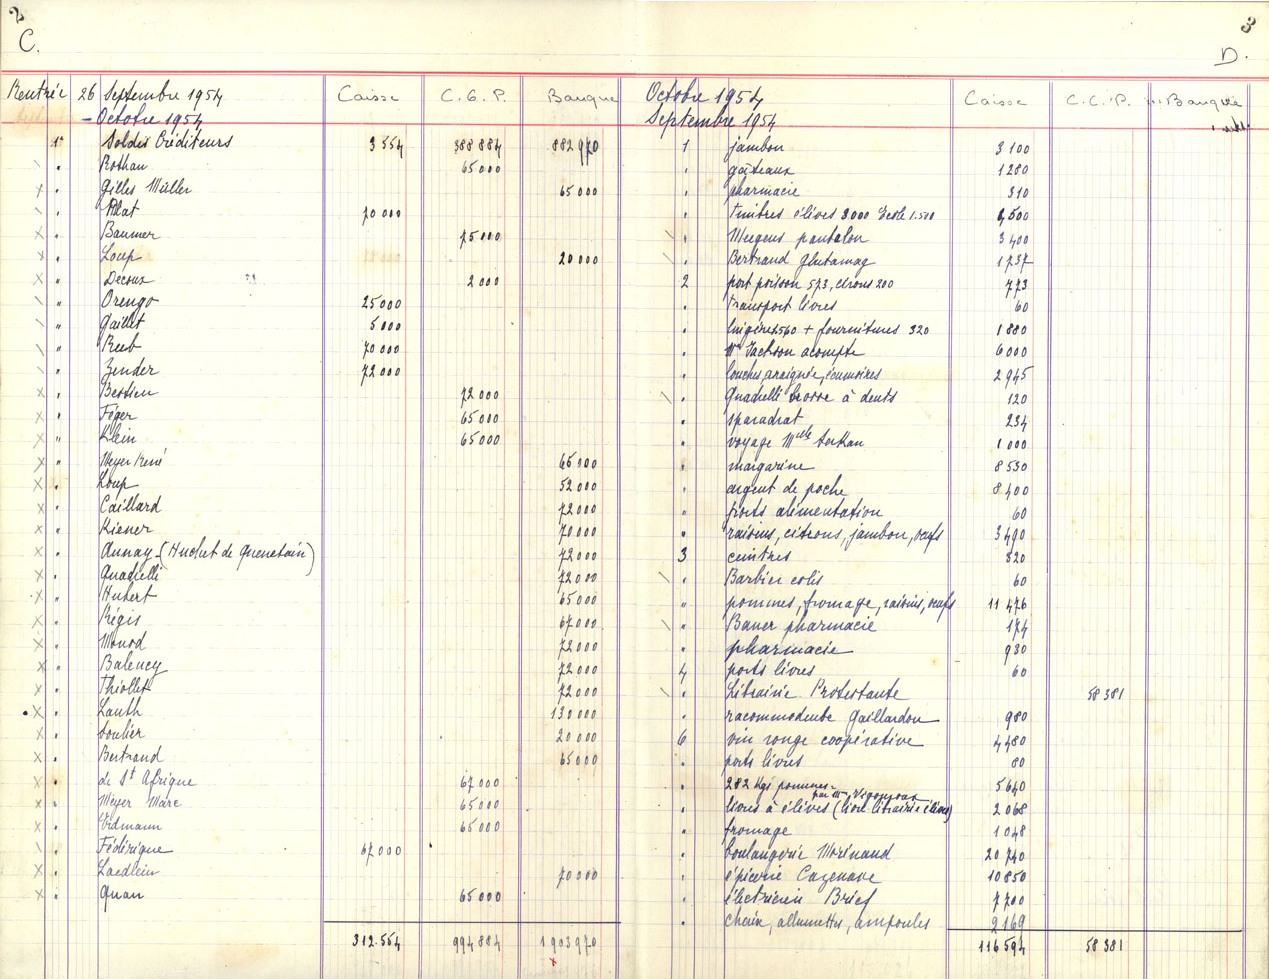 2
C.
Rentrée 26 Septembre 1954 Caisse C. C. P. Banque
- Octobre 1954
1er Soldes Créditeurs 3 554 388 884 882 970
" Rothan 65 000
" Gilles Müller 65 000
" 70 000
" Baumer 75 000
" Loup 20 000
" Decoux 2 000
" Orengo 25 000
" Gaillet 5 000
" Reeb 70 000
" Zender 72 000
" Bestien 72 000
" Féger 65 000
" Klein 65 000
" Meyer René 65 000
" Loup 52 000
" Caillard 72 000
" Kiener 70 000
" Aunay (Huchet de Quenetain) 72 000
" Quadrelli 72 000
" Hubert 65 000
" Régis 67 000
" Monod 72 000
" Balency 72 000
" Thiollet 72 000
" Lauth 130 000
" Soulier 20 000
" Bertrand 65 000
" de St Afrique 67 000
" Meyer Marc 65 000
" Widmann 65 000
" Fédérique 67 000
" Laedlein 70 000
" Quan 65 000
312.554 994 884 1 903 970
3
D.
Octobre 1954 Caisse C.C.P. Banque
Septembre 1954
1 jambon 3 100
" gâteaux 1280
" pharmacie 310
" timbres élèves 3000 Ecole 1.500 4 500
" Meegens pantalon 3 400
" Bertrand glutamag 1 737
2 port poisson 573, citrons 200 773
" transport livres 60
" lingères 560 + fournitures 320 1 880
" Mr Jackson acompte 6 000
" louches, araignée, écumoires 2 945
" Quadrelli brosse à dents 120
" sparadrat 234
" voyage Melle 1 000
" margarine 8 530
" argent de poche 8 400
" ports alimentation 60
" raisins, citrons, jambon, oeufs 3 490
3 ceintres 820
" Barbier colis 60
" pommes, fromage, raisins, oeufs 11 476
" Baner pharmacie 174
" pharmacie 930
4 ports livres 60
" Librairie Protestante 58 381
" racommodeuse Gaillardon 980
6 vin rouge coopérative 4 480
" ports livres 80
" 282 Kgs pommes 5640
par Mr Vigouroux
" livres à élèves (livre librairie élèves) 2 068
" fromage 1 048
" boulangerie Morinaud 20 740
" épicerie Cazenave 10 850
" électricien Brief 7 700
" chaux, allumettes, ampoules 2 169
116 594 58 381